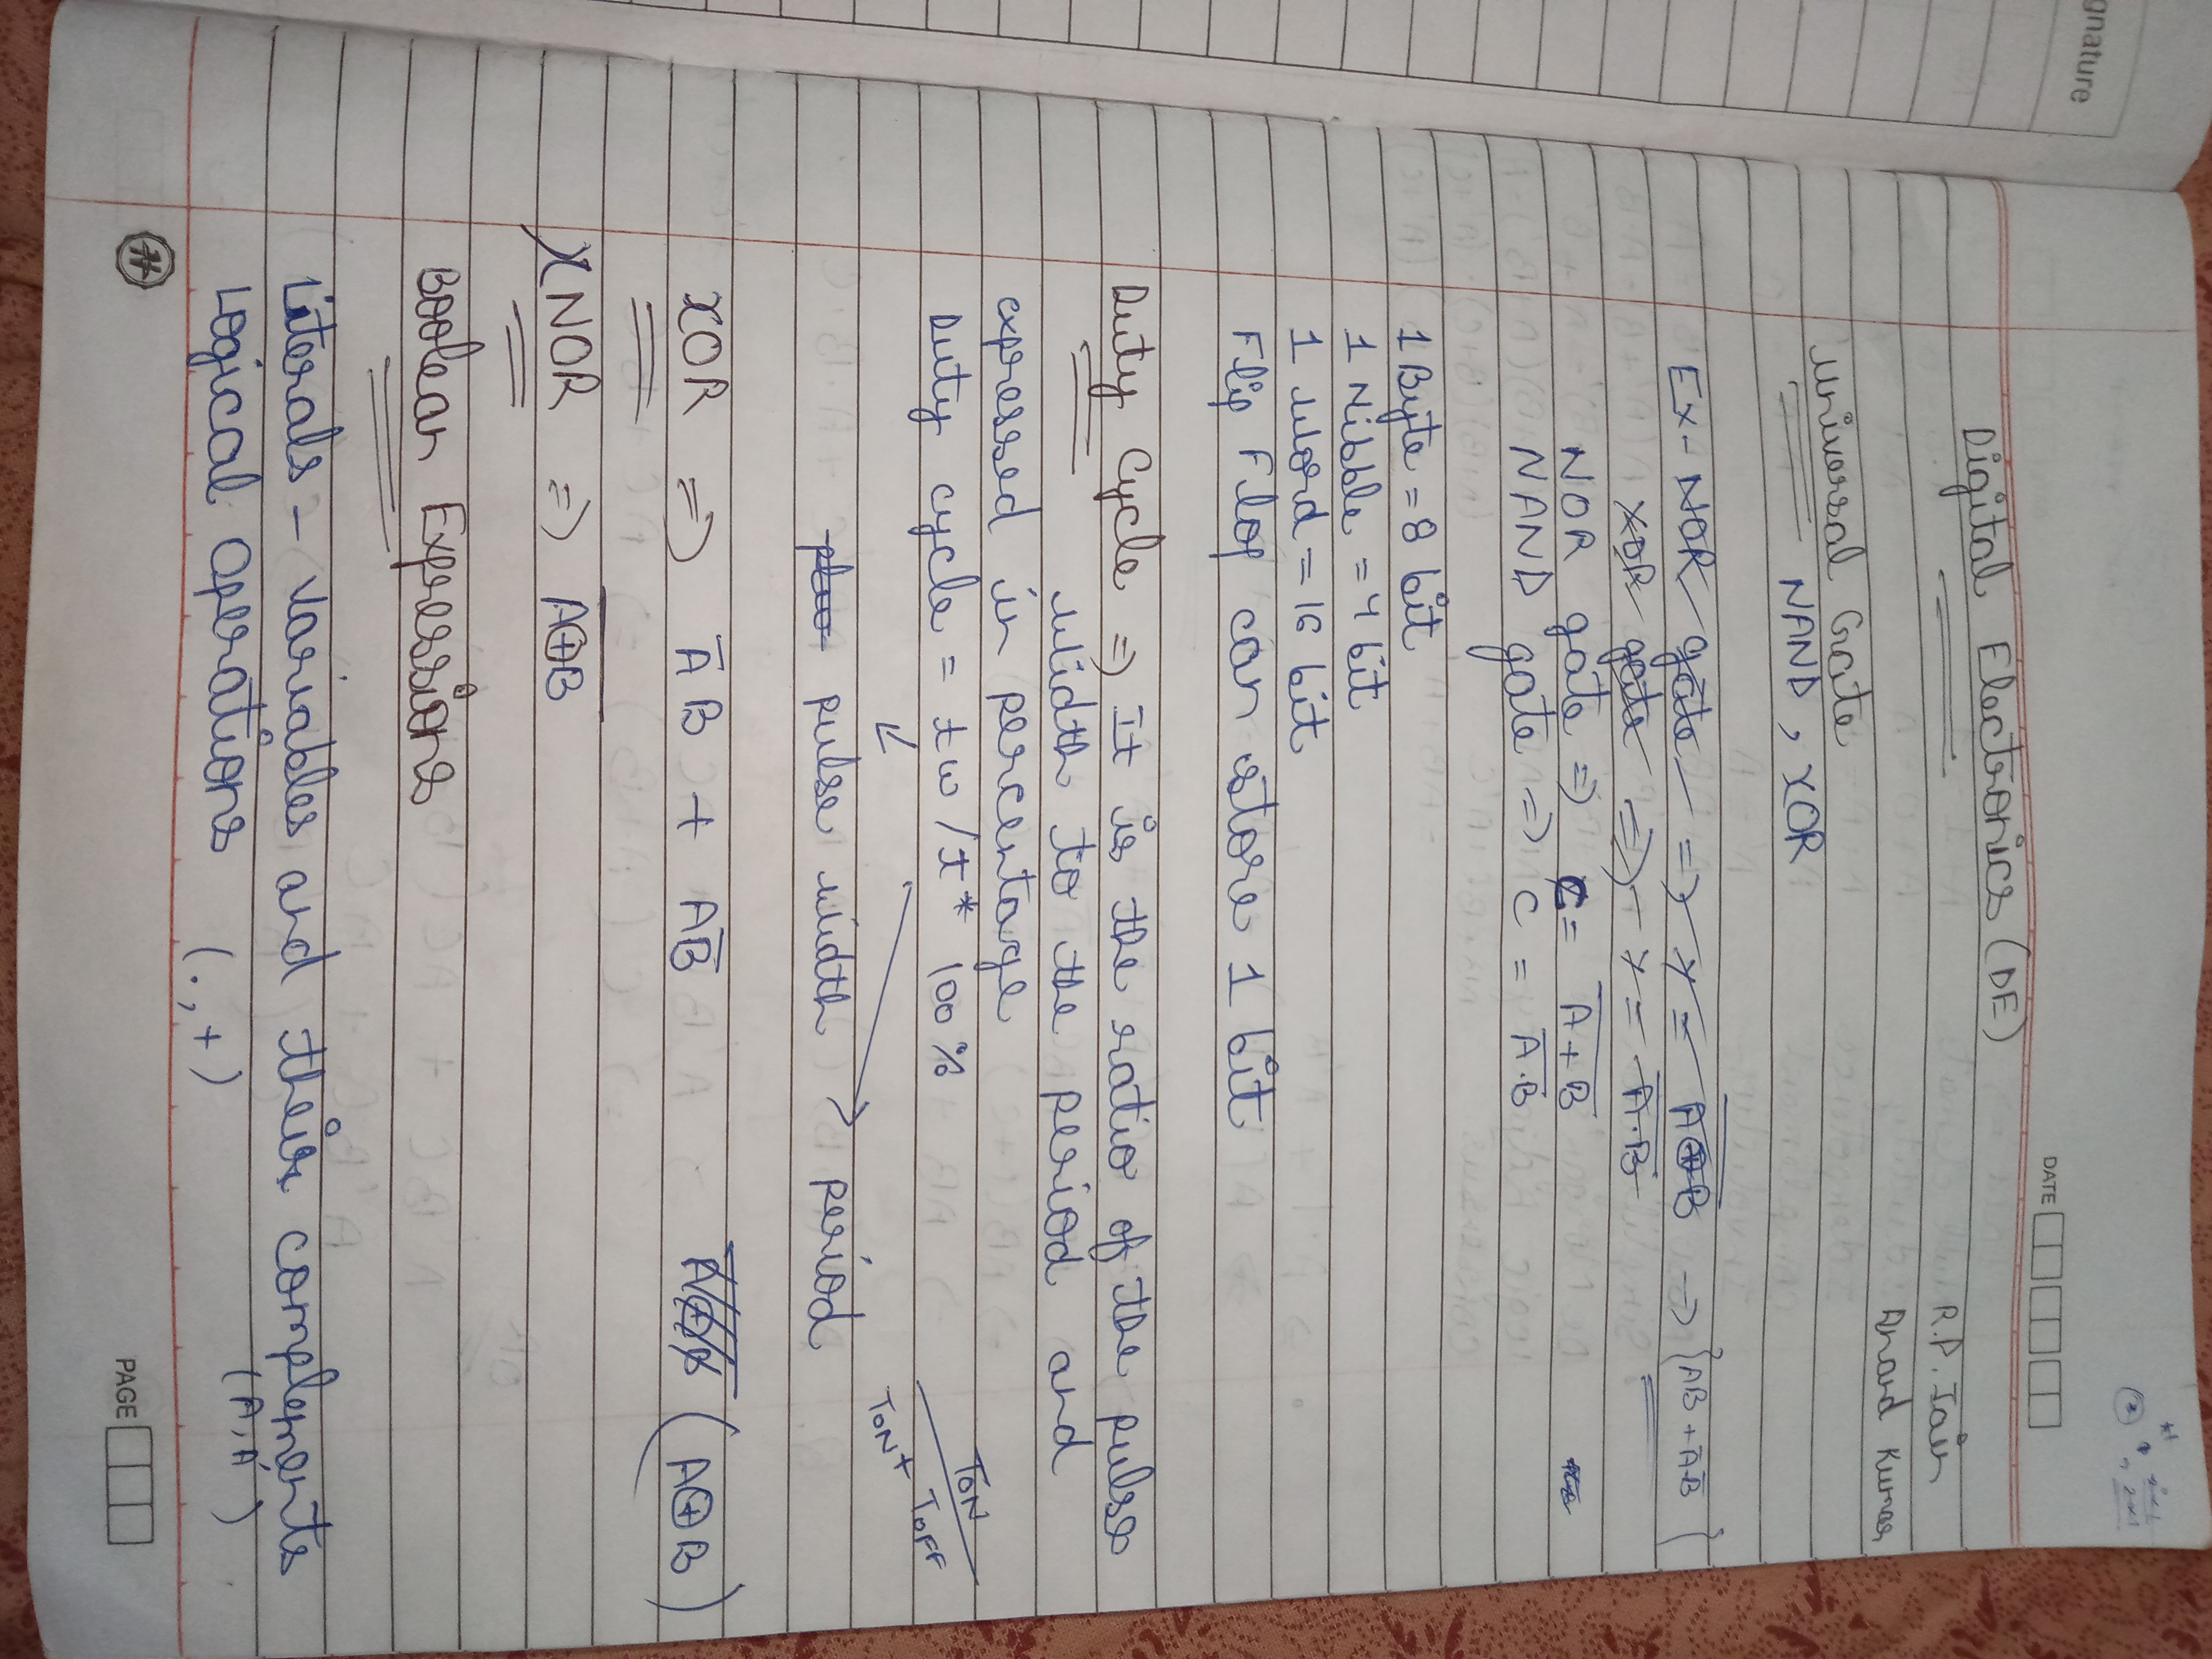 gnature
DATE
Digital Electronics (DE)
R.P. Jain
Anand Kumar
Universal Gate
NAND, XOR
Ex-NOR gate => Y = \overline{A⊕B} -> {AB + \bar{A}\bar{B}}
XOR gate => Y = \overline{A·B}
NOR gate => C = \overline{A+B}
NAND gate => C = \overline{A·B}
1 Byte = 8 bit
1 Nibble = 4 bit
1 word = 16 bit
Flip Flop can store 1 bit
Duty Cycle => It is the ratio of the pulse
width to the period and
expressed in percentage
Duty cycle = tw/t * 100 %
TON
TON + TOFF
pulse width period
XOR => \bar{A}B + A\bar{B} (A⊕B)
XNOR => \overline{A⊕B}
Boolean Expressions
Literals - Variables and their complements
(A, A')
Logical operations (·, +)
PAGE